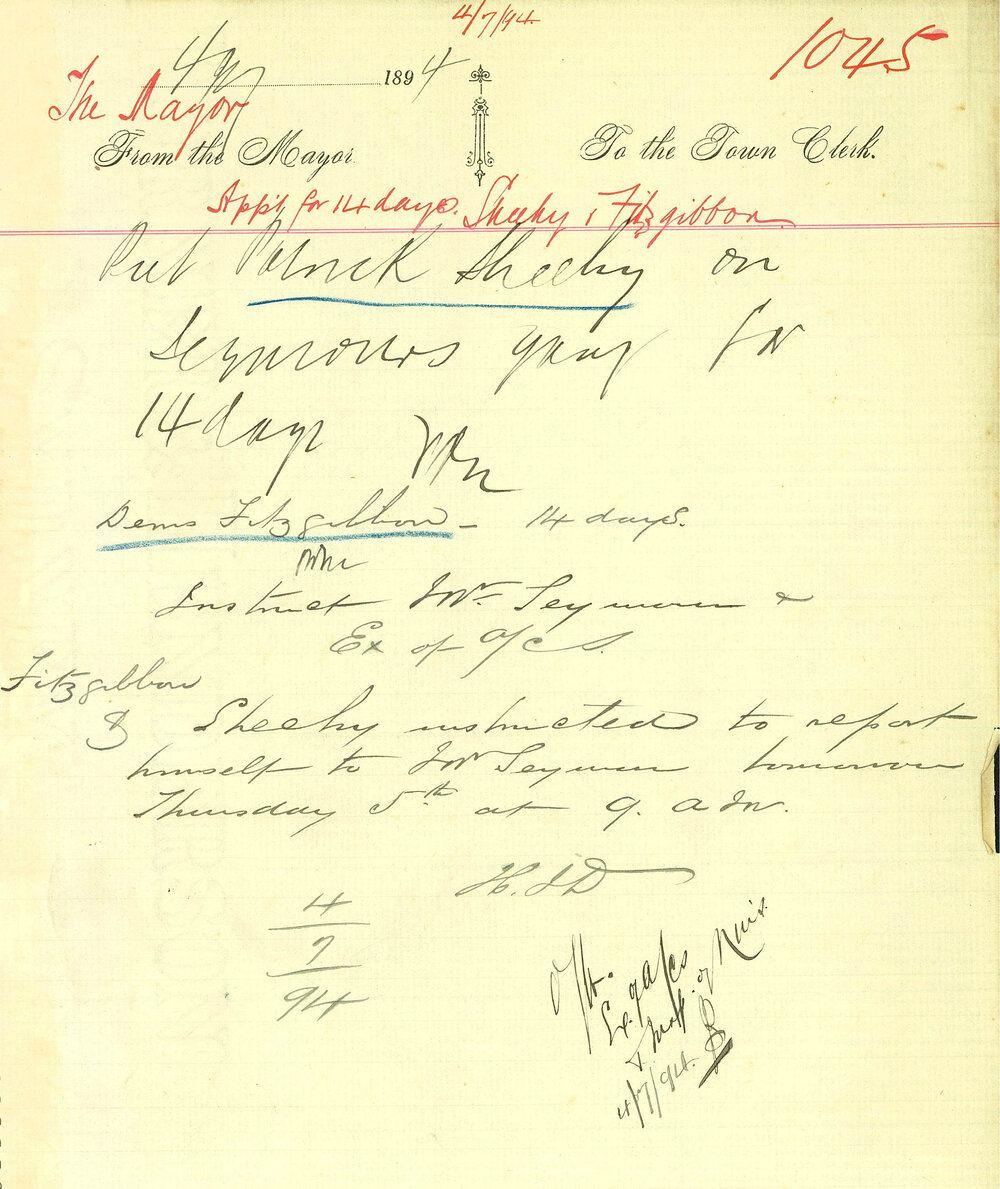 4/7/94
1045
4/7 1894
The Mayor
From the Mayor
To the Town Clerk.
Appt. for 14 days. Sheehy & Fitzgibbon
Put Patrick Sheehy on
Seymours gang for
14 days
Denis Fitzgibbon - 14 days.
Instruct Mr Seymour &
Ex of a/cs.
Fitzgibbon
& Sheehy instructed to report
himself to Mr Seymour tomorrow
Thursday 5th at 9. a.m.
H.J.D
4
7
94
Ex. of a/cs
4/7/94.